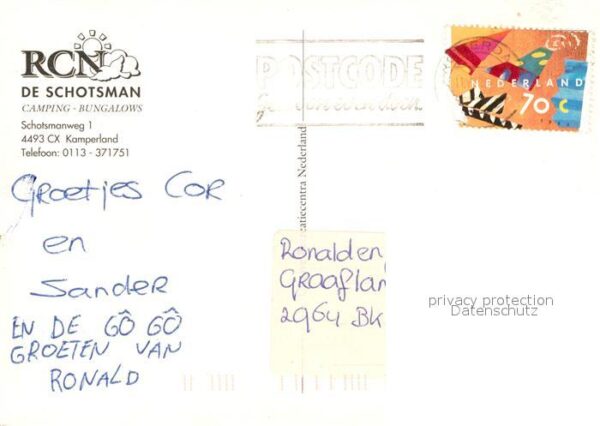 RCN
DE SCHOTSMAN
CAMPING - BUNGALOWS
Schotsmanweg 1
4493 CX Kamperland
Telefoon: 0113 - 371751
POSTCODE
NEDERLAND
70 c
Groetjes Cor
en
Sander
EN DE GÔ GÔ
GROETEN VAN
RONALD
atiecentra Nederland
Ronald en
Graaflan
2964 BK
privacy protection
Datenschutz